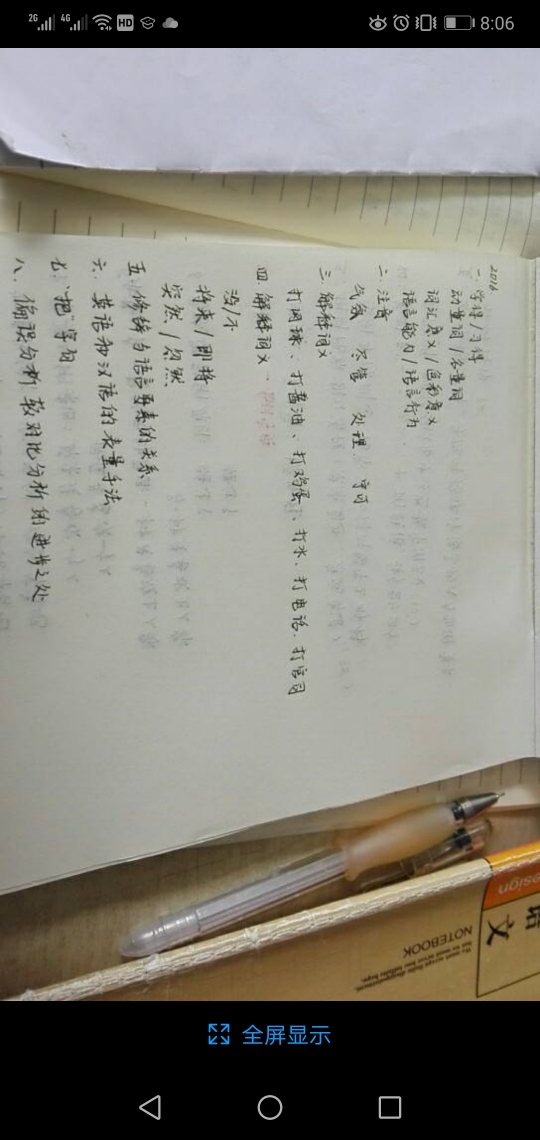 2G 4G HD 8:06
2016
一、学得/习得
动量词/名量词
词汇意义/色彩意义
语言能力/语言行为
二、注音
气氛 尽管 处理 宁可
三、解释词义
打网球、打酱油、打鸡蛋、打水、打电话、打官司
四、解释词义
没/不
将来/即将
突然/忽然
五、修辞与语言要素的关系
六、英语和汉语的表量手法
七、"把"字句
八、偏误分析较对比分析的进步之处
design
语文
NOTEBOOK
全屏显示